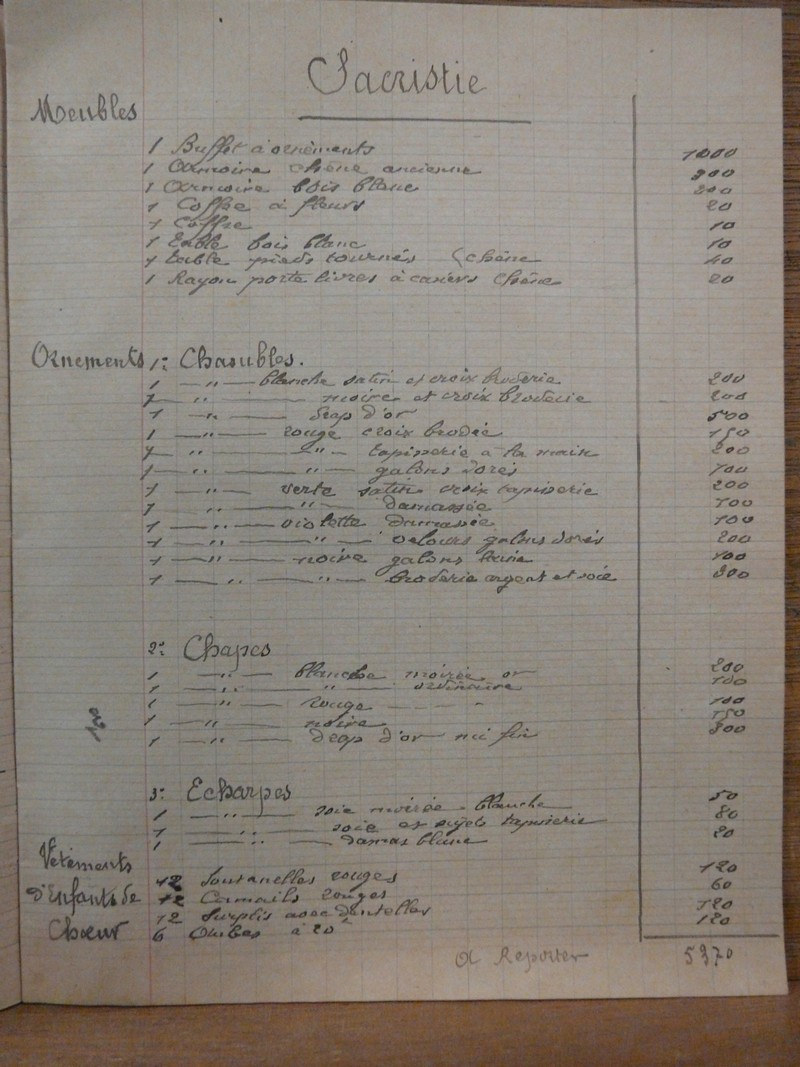 Sacristie
Meubles
1 Buffet à ornements 1000
1 Armoire chêne ancienne 900
1 Armoire bois blanc 200
1 Coffre à fleurs 20
1 Coffre 10
1 Table bois blanc 10
1 Table pieds tournés (chêne 40
1 Rayon porte livres à casiers chêne 20
Ornements 1º: Chasubles.
1 — " — blanche satin et croix broderie 200
1 — " — noire et croix broderie 200
1 — " — drap d'or 500
1 — " — rouge croix brodée 150
1 — " — " — tapisserie à la main 200
1 — " — " — galons dorés 100
1 — " — verte satin croix tapisserie 200
1 — " — " — damassée 100
1 — " — violette damassée 100
1 — " — " — velours galons dorés 200
1 — " — noire galons 100
1 — " — " — broderie argent et soie 300
2º: Chapes
1 — " — blanche moirée or 200
1 — " — " — ordinaire 100
1 " — rouge — " 100
1 " — noire 150
1 — " — drap d'or mi fin 300
3º: Echarpes
1 — " — soie moirée blanche 50
1 — " — soie et sujets tapisserie 80
1 — " — damas blanc 20
Vêtements
d'Enfants de
Chœur
12 Soutanelles rouges 120
12 Camails rouges 60
12 Surplis avec dentelles 120
6 Aubes à 20 120
A Reporter 5970